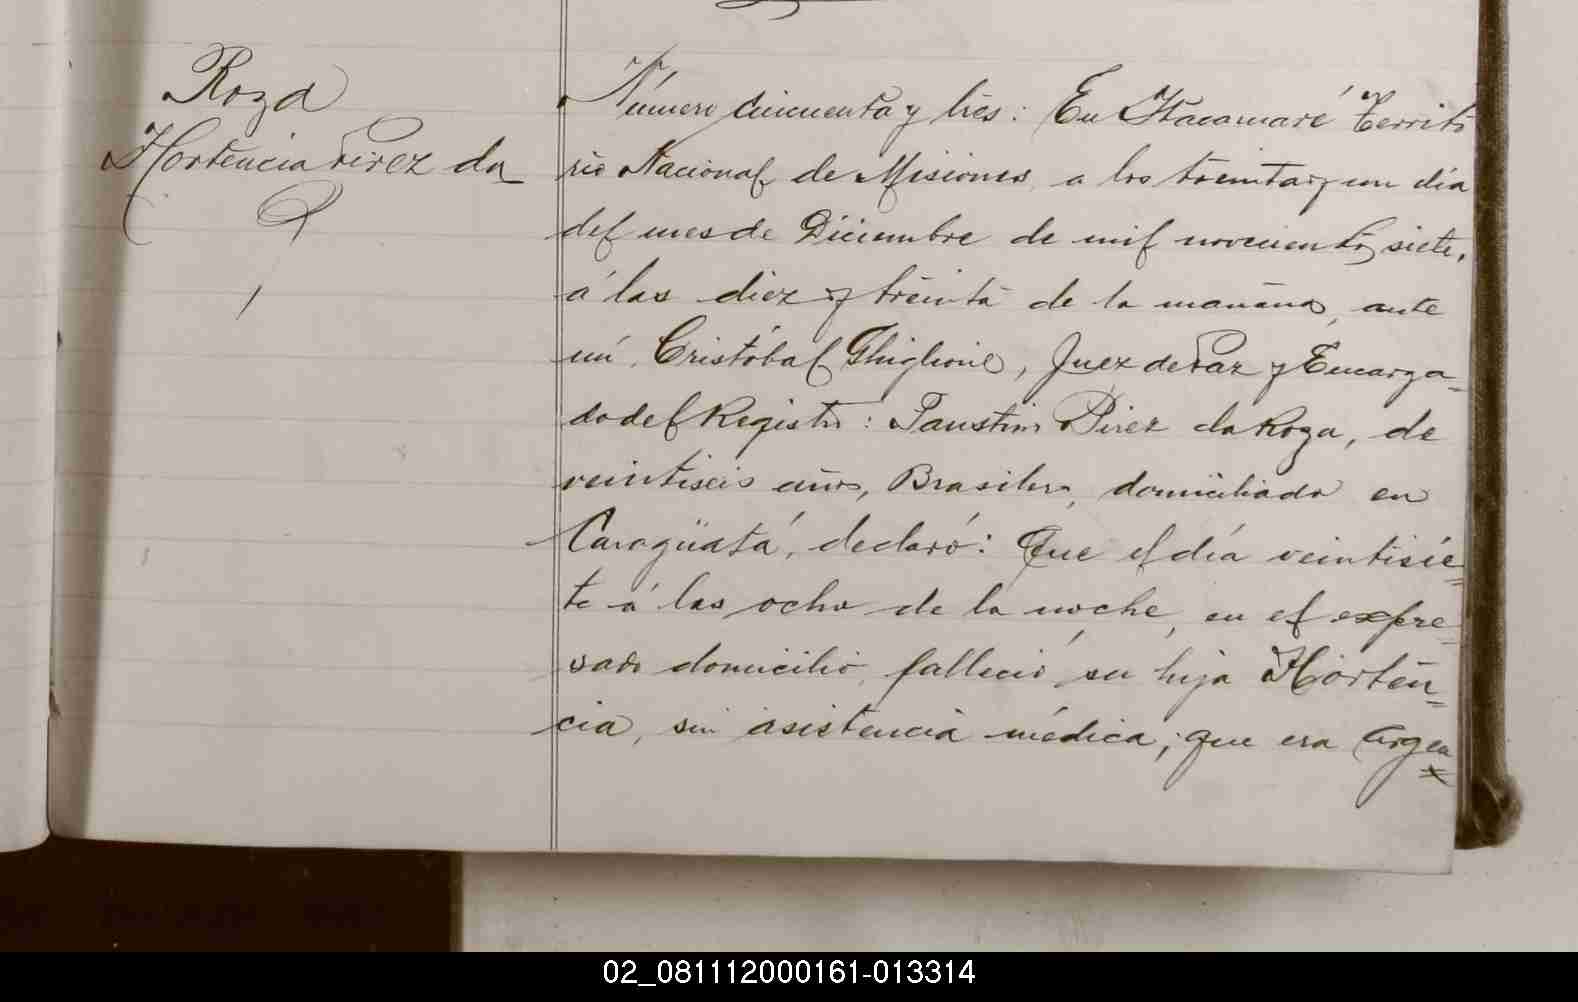 Roza
Hortencia Pirez da
Número cincuenta y tres: En Itacaruaré Territo
rio Nacional de Misiones, a los treinta y un dia
del mes de Diciembre de mil novecientos siete,
á las diez y treinta de la mañana, ante
mí, Cristóbal Ghiglione, Juez de Paz y Encarga=
do del Registro: Faustino Pirez da Roza, de
veintiseis años, Brasilero, domiciliado en
Caragüatá, declaró: Que el día veintisie=
te á las ocho de la noche, en el expre=
sado domicilio, falleció su hija Horten=
cia, sin asistencia médica; que era Argen=
02_081112000161-013314